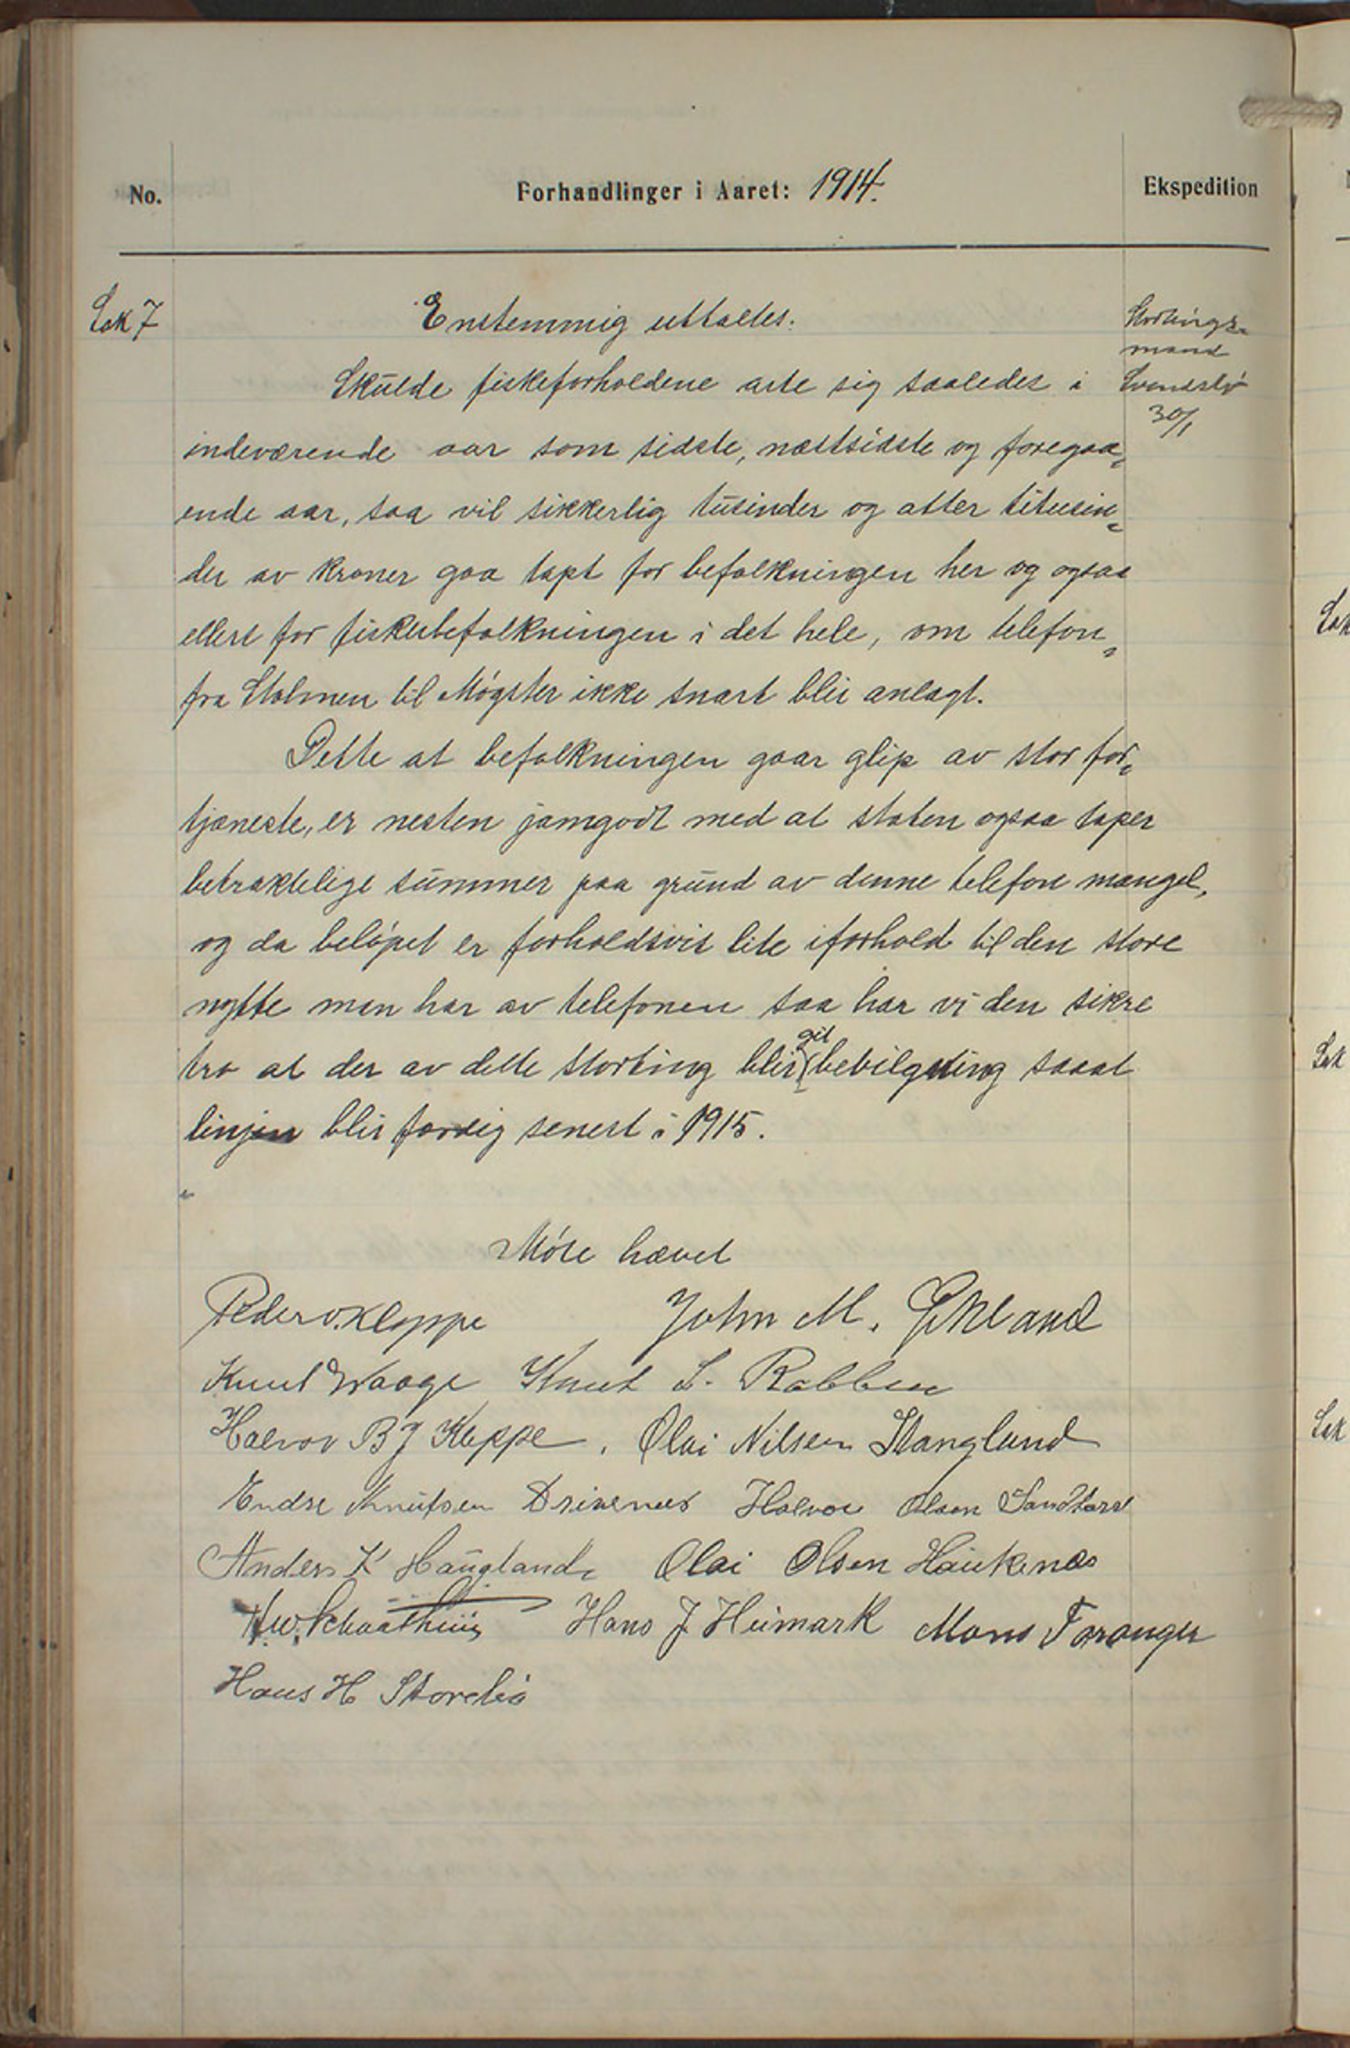 No.
Forhandlinger i Aaret: 1914.
Ekspedition
Sak 7
Enstemmig uttaltes.
Stortings-
mand
Svendslø
30/1
Skulde fiskeforholdene arte sig saaledes i
indeværende aar som sidste, næstsidste og foregaa-
ende aar, saa vil sikkerlig tusinder og atter titusin-
der av kroner gaa tapt for befolkningen her og ogsaa
ellers for fiskerbefolkningen i det hele, om telefon-
fra Stolmen til Møgster ikke snart blir anlagt.
Dette at befolkningen gaar glip av stor for-
tjeneste, er nesten jamgodt med at staten ogsaa taper
betraktelige summer paa grund av denne telefon mangel,
og da beløpet er forholdsvis lite iforhold til den store
nytte man har av telefonen saa har vi den sikre
tro at der av dette storting blir git bevilgning saaat
linjen blir færdig senest i 1915.
Møte hævet
Peder O. Kleppe John M. Økland
Knut Waage Knut S. Rabben
Halvor B J Kleppe. Olai Nilsen Stangeland
Endre Knutsen Drivenes Halvor Olsen Sandtorv
Anders K Haugland. Olai Olsen Haukenæs
Hans J Heimark Mons Taranger
Hans H Storebø
Sak
Sak
Sak